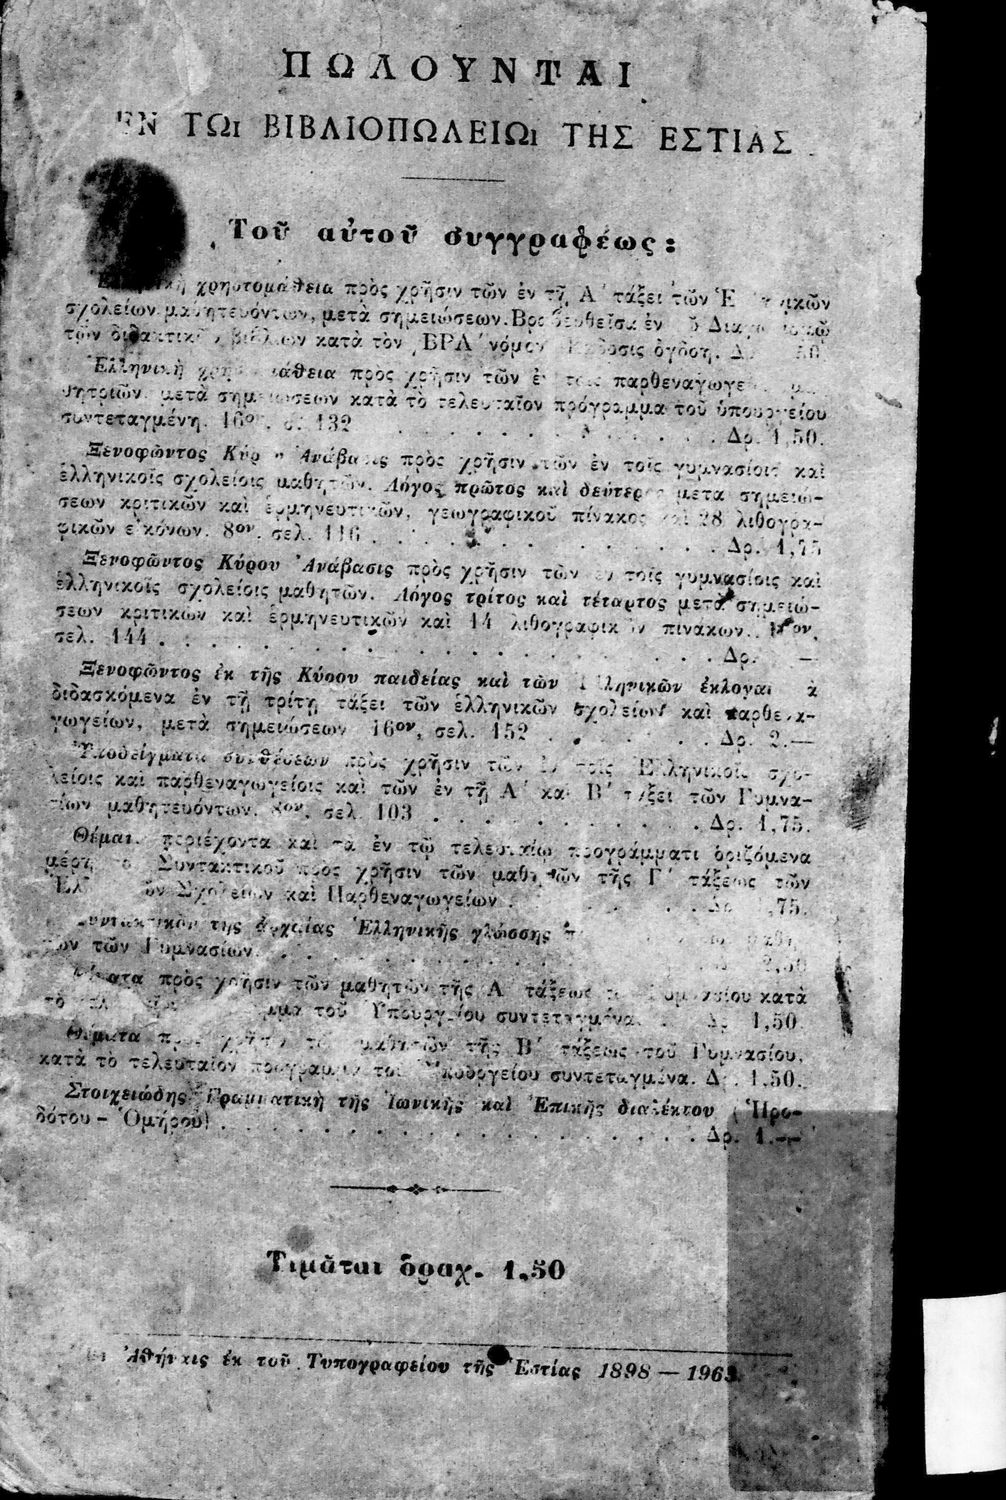 ΠΩΛΟΥΝΤΑΙ
ἘΝ ΤΩι ΒΙΒΛΙΟΠΩΛΕΙΩι ΤΗΣ ΕΣΤΙΑΣ
Τοῦ αὐτοῦ συγγραφέως:
χρηστομάθεια πρὸς χρῆσιν τῶν ἐν τῇ Α΄ τάξει τῶν
σχολείων μαθητευόντων, μετὰ σημειώσεων. ἐν
τῶν διδακτικῶν βιβλίων κατὰ τὸν ͵ΒΡΛ΄ νόμον ὀγδόη.
Ἑλληνικὴ πρὸς χρῆσιν τῶν ἐν τοῖς
μετὰ σημειώσεων κατὰ τὸ τελευταῖον πρόγραμμα τοῦ ὑπουργείου
συντεταγμένη. 16ον. σ. 132 . . . . . . . . Δρ. 1,50.
Ξενοφῶντος Ἀνάβασις πρὸς χρῆσιν τῶν ἐν τοῖς γυμνασίοις καὶ
ἑλληνικοῖς σχολείοις μαθητῶν. Λόγος πρῶτος καὶ δεύτερος μετὰ σημειώ-
σεων κριτικῶν καὶ ἑρμηνευτικῶν, γεωγραφικοῦ πίνακος καὶ 28 λιθογρα-
φικῶν εἰκόνων. 8ον. σελ. 116 . . . . . . . . Δρ. 1,75
Ξενοφῶντος Κύρου Ἀνάβασις πρὸς χρῆσιν τῶν ἐν τοῖς γυμνασίοις καὶ
ἑλληνικοῖς σχολείοις μαθητῶν. Λόγος τρίτος καὶ τέταρτος μετὰ σημειώ-
σεων κριτικῶν καὶ ἑρμηνευτικῶν καὶ 14 λιθογραφικῶν πινάκων.
σελ. 144 . . . . . . . . Δρ. —
Ξενοφῶντος ἐκ τῆς Κύρου παιδείας καὶ τῶν Ἑλληνικῶν ἐκλογαὶ
διδασκόμενα ἐν τῇ τρίτῃ τάξει τῶν ἑλληνικῶν σχολείων καὶ παρθενα-
γωγείων, μετὰ σημειώσεων 16ον, σελ. 152 . . . . . . Δρ. 2.—
Ὑποδείγματα συνθέσεων πρὸς χρῆσιν τῶν τοῖς Ἑλληνικοῖς σχο-
λείοις καὶ παρθεναγωγείοις καὶ τῶν ἐν τῇ Α΄ καὶ Β΄ τάξει τῶν Γυμνα-
σίων μαθητευόντων. 8ον. σελ. 103 . . . . . . . . Δρ. 1,75.
Θέματα περιέχοντα καὶ τὰ ἐν τῷ τελευταίῳ προγράμματι ὁριζόμενα
μέρη Συντακτικοῦ πρὸς χρῆσιν τῶν μαθητῶν τῆς Γ΄ τάξεως τῶν
Σχολείων καὶ Παρθεναγωγείων . . . . . .
Συντακτικὸν τῆς ἀρχαίας Ἑλληνικῆς γλώσσης
τῶν Γυμνασίων. . . . . . . . . 2,50
Θέματα πρὸς χρῆσιν τῶν μαθητῶν τῆς Α΄ τάξεως Γυμνασίου κατὰ
τὸ τοῦ Ὑπουργείου συντεταγμένα. Δρ. 1,50
Θέματα πρὸς χρῆσιν τῶν μαθητῶν τῆς Β΄ τάξεως τοῦ Γυμνασίου,
κατὰ τὸ τελευταῖον πρόγραμμα τοῦ Ὑπουργείου συντεταγμένα. Δρ. 1.50.
Στοιχειώδης Γραμματικὴ τῆς Ἰωνικῆς καὶ Ἐπικῆς διαλέκτου (Ἡρο-
δότου - Ὁμήρου) . . . . . . . . Δρ. 1.—
Τιμᾶται δραχ. 1,50
Ἀθήναις ἐκ τοῦ Τυπογραφείου τῆς Ἑστίας 1898 —